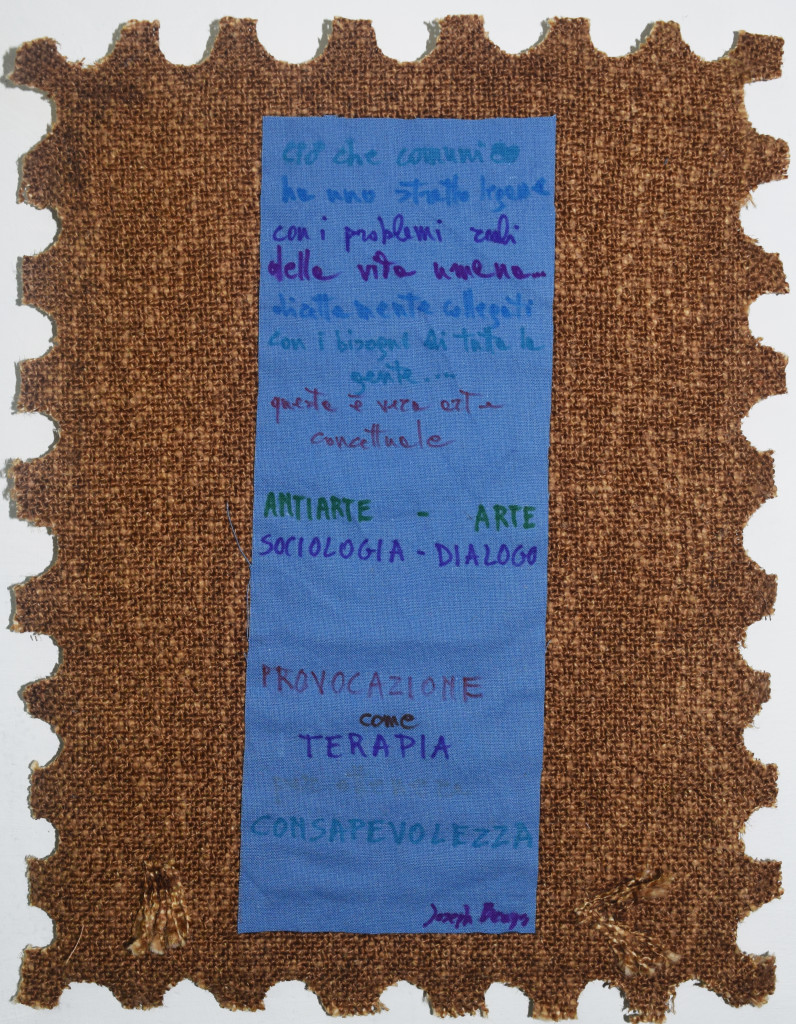 ciò che comunico
ha uno stretto legame
con i problemi reali
della vita umana...
direttamente collegati
con i bisogni di tutta la
gente...
questa è vera arte
concettuale
ANTIARTE - ARTE
SOCIOLOGIA - DIALOGO
PROVOCAZIONE
come
TERAPIA
CONSAPEVOLEZZA
Joseph Beuys